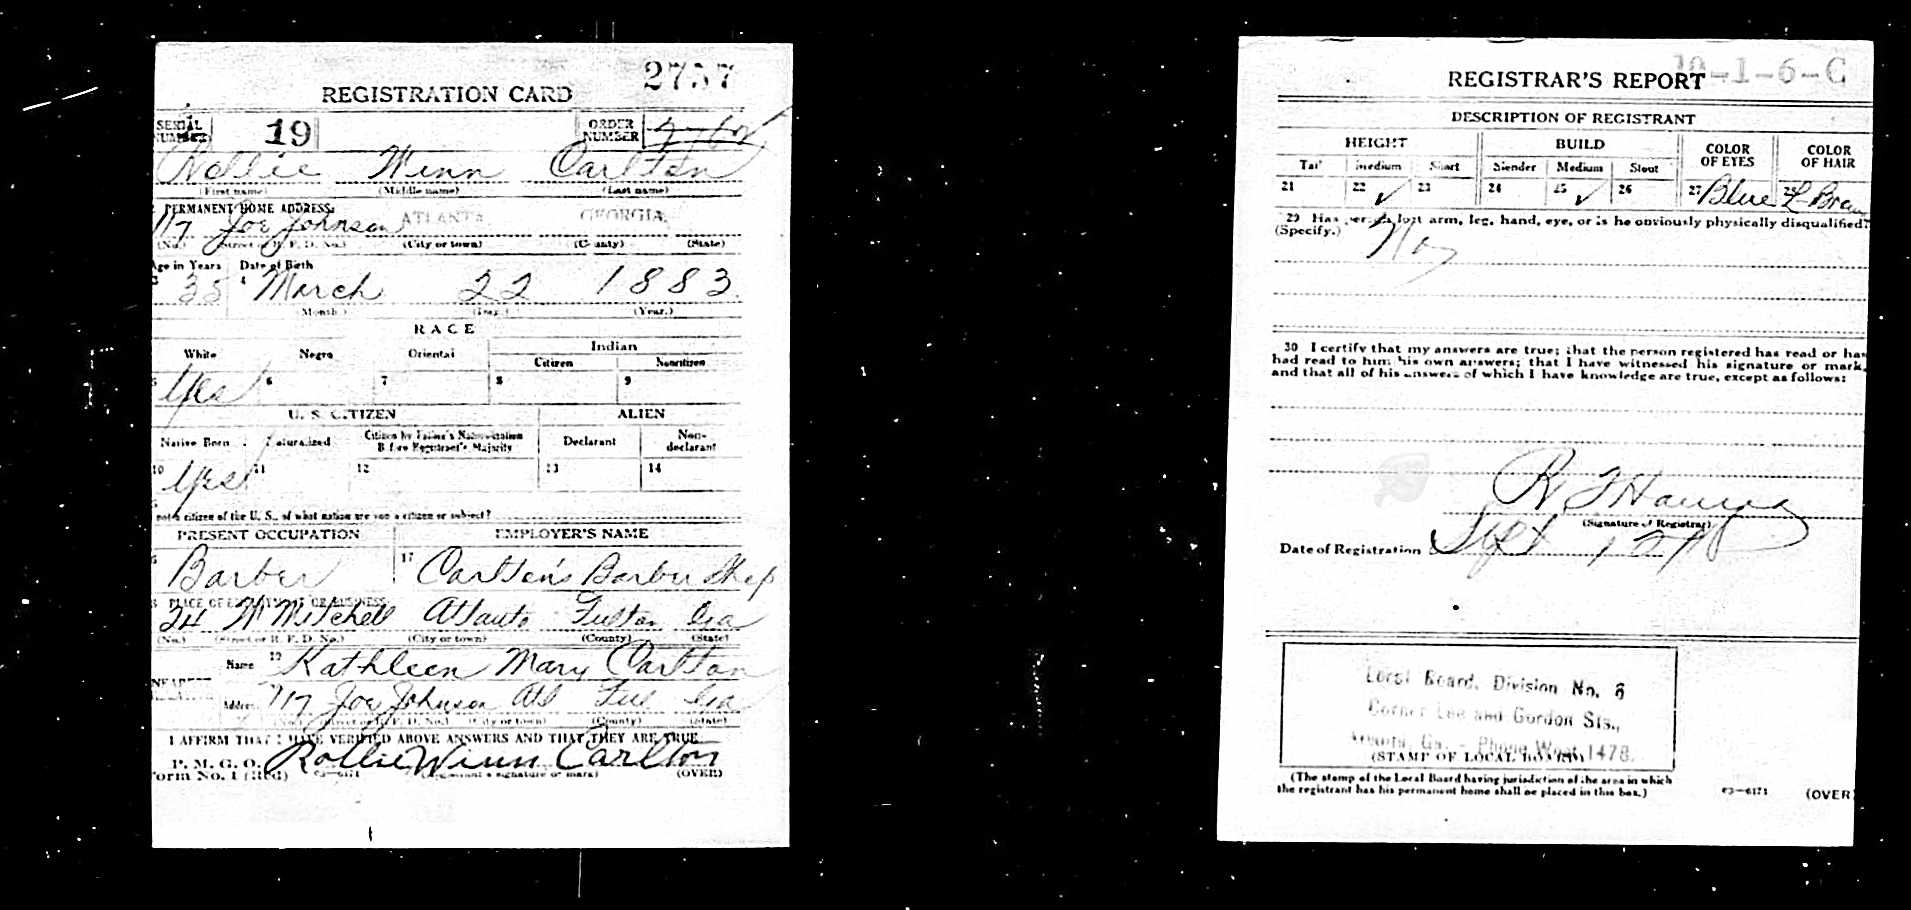 2757
REGISTRATION CARD
SERIAL NUMBER 19 ORDER NUMBER
Rollie Winn Carlton
(First name) (Middle name) (Last name)
PERMANENT HOME ADDRESS:
117 Joe Johnson ATLANTA GEORGIA
(No.) (Street or R. F. D. No.) (City or town) (County) (State)
Age in Years Date of Birth
35 4 March 22 1883
(Month.) (Day.) (Year.)
RACE
White Negro Oriental Indian
Citizen Noncitizen
5 Yes 6 7 8 9
U. S. CITIZEN ALIEN
Native Born Naturalized Citizen by Father's Naturalization Before Registrant's Majority Declarant Non-declarant
10 Yes 11 12 13 14
not a citizen of the U. S., of what nation are you a citizen or subject?
PRESENT OCCUPATION EMPLOYER'S NAME
Barber 17 Carlton's Barber Shop
PLACE OF EMPLOYMENT OR BUSINESS:
24 W Mitchell Atlanta Fulton Ga
(No.) (Street or R. F. D. No.) (City or town) (County) (State)
Name 19 Kathleen Mary Carlton
NEAREST
Address 117 Joe Johnson Atl Ful Ga
(No.) (Street or R. F. D. No.) (City or town) (County) (State)
I AFFIRM THAT I HAVE VERIFIED ABOVE ANSWERS AND THAT THEY ARE TRUE
P. M. G. O.
Form No. 1 (Red) 03—6171 Rollie Winn Carlton
(Registrant's signature or mark) (OVER)
10-1-6-C
REGISTRAR'S REPORT
DESCRIPTION OF REGISTRANT
HEIGHT BUILD COLOR OF EYES COLOR OF HAIR
Tall Medium Short Slender Medium Stout
21 22 ✓ 23 24 25 ✓ 26 27 Blue 28 L Brown
29 Has person lost arm, leg, hand, eye, or is he obviously physically disqualified?
(Specify.) No
30 I certify that my answers are true; that the person registered has read or has
had read to him his own answers; that I have witnessed his signature or mark,
and that all of his answers of which I have knowledge are true, except as follows:
(Signature of Registrar)
Date of Registration Sept 12
Local Board, Division No. 6
Corner Lee and Gordon Sts.,
Atlanta, Ga. - Phone West 1478.
(STAMP OF LOCAL BOARD)
(The stamp of the Local Board having jurisdiction of the area in which
the registrant has his permanent home shall be placed in this box.)
03—6171 (OVER)